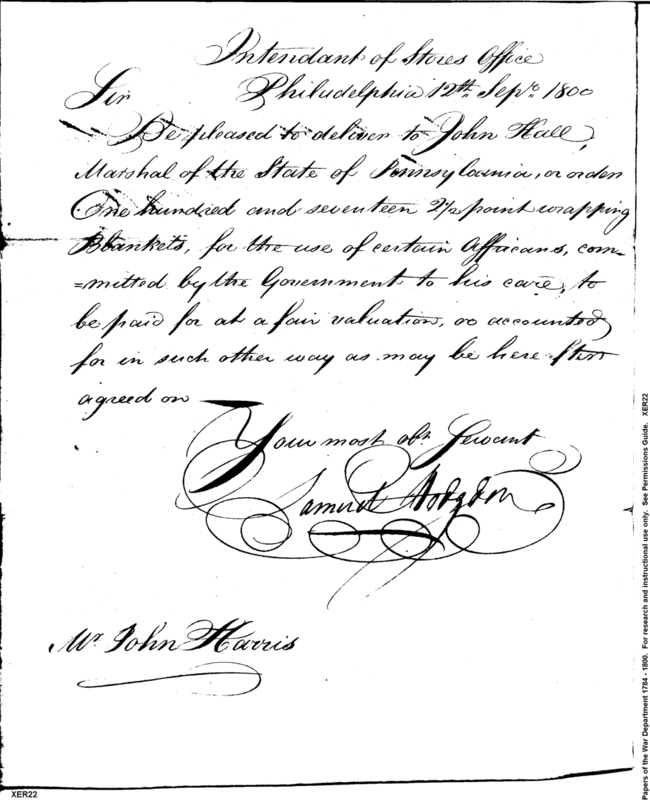 Intendant of Stores Office
Philadelphia 12th. Sepr. 1800
Sir
Be pleased to deliver to John Hall,
Marshal of the State of Pennsylvania, or order
One hundred and seventeen 2½ point wrapping
Blankets, for the use of certain Affricans, com=
=mitted by the Government to his care, to
be paid for at a fair valuation, or accounted
for in such other way as may be here after
agreed on
Your most obt. Servant
Samuel Hodgdon
Mr. John Harris
XER22
Papers of the War Department 1784 - 1800. For research and instructional use only. See Permissions Guide. XER22